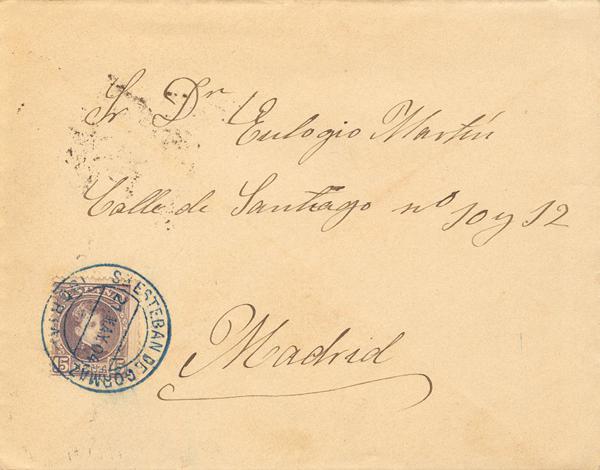 Sr Dr Eulogio Martín
Calle de Santiago nº 10 y 12
Madrid
S. ESTEBAN DE GORMAZ
(SORIA)
MAY 04
15